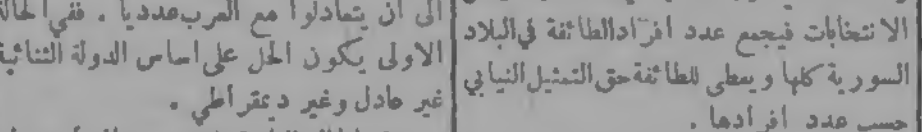 الانتخابات فيجمع عدد افراد الطائفة في البلاد
السورية كلها ويعطى للطائفة حق التمثيل النيابي
حسب عدد افرادها .
الى ان يتعادلوا مع العرب عدديا . ففي الحالة
الاولى يكون الحل على اساس الدولة الثنائية
غير عادل وغير ديمقراطي .